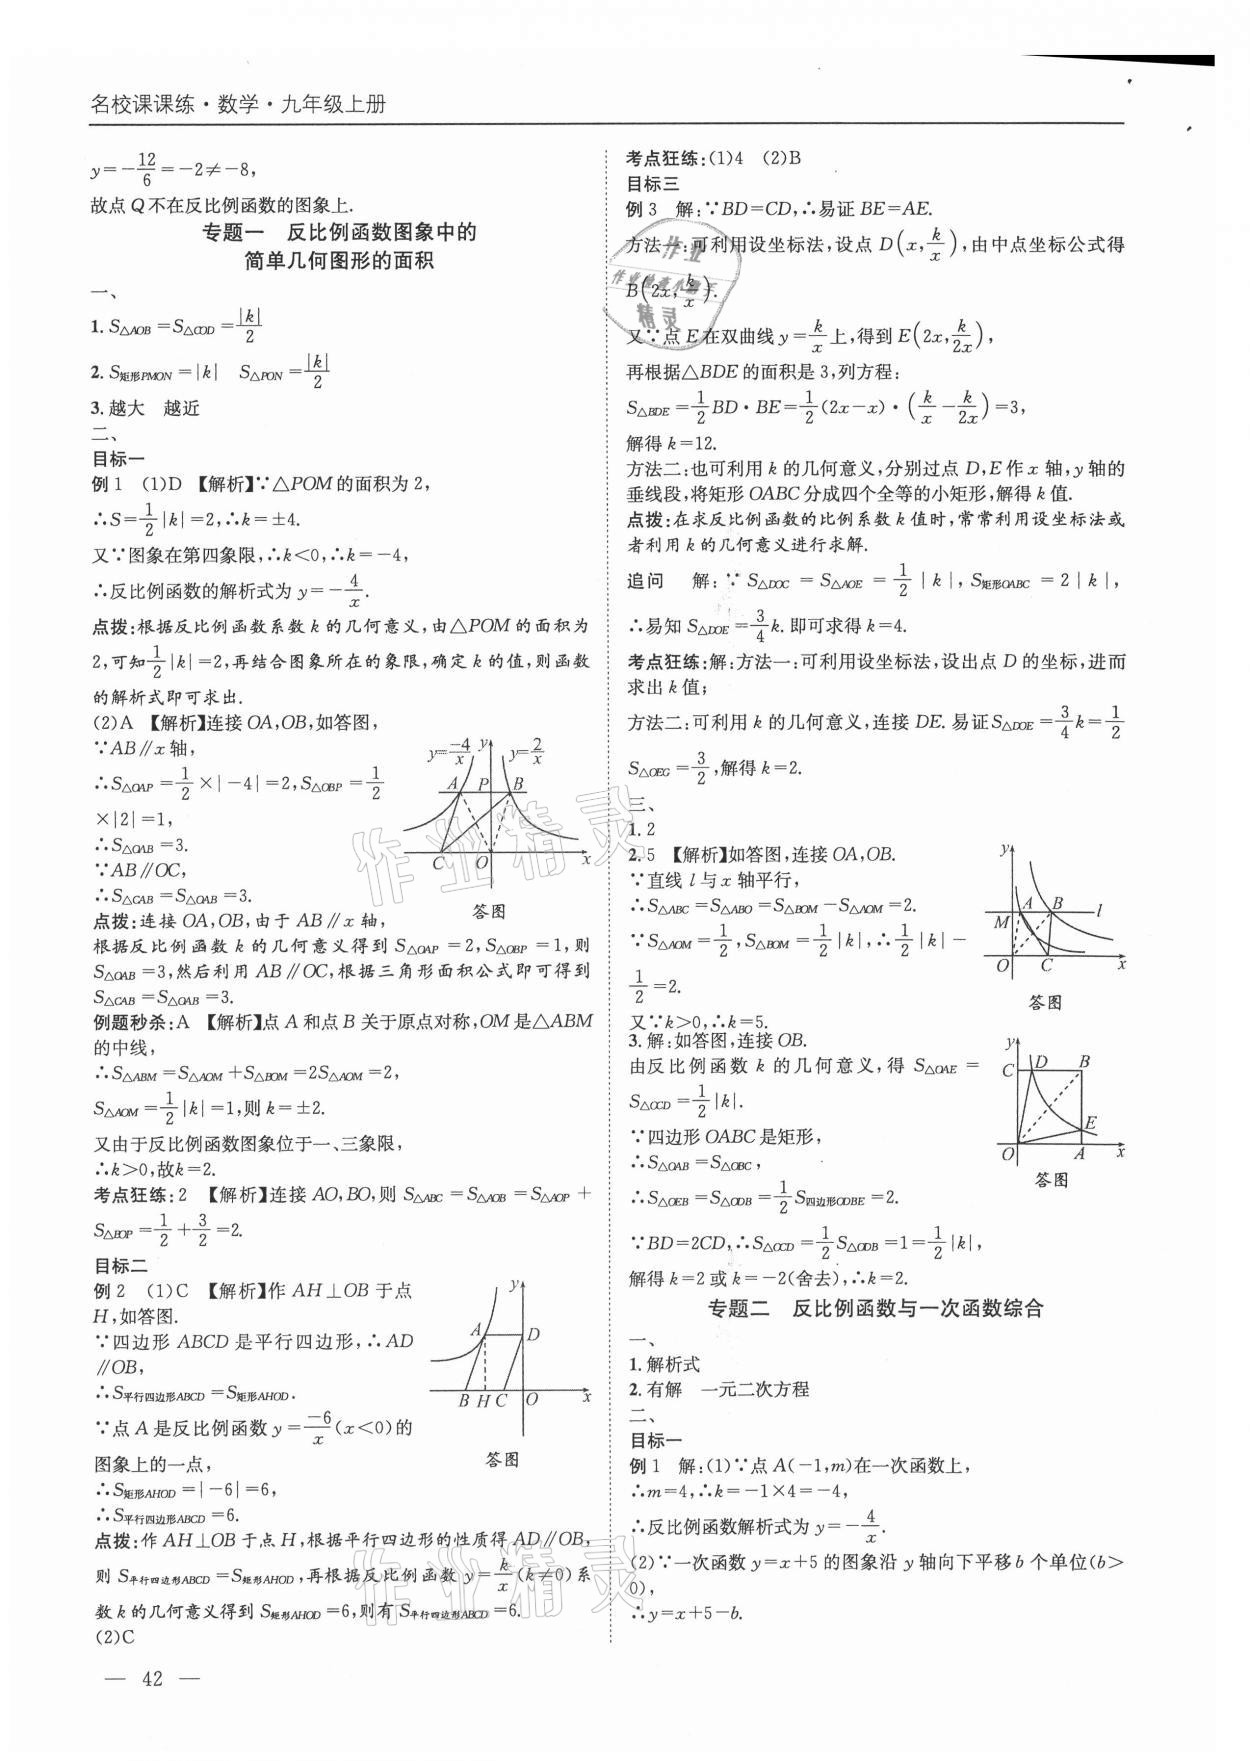 名校课课练·数学·九年级上册
y=-12/6=-2≠-8,
故点 Q 不在反比例函数的图象上.
专题一　反比例函数图象中的
简单几何图形的面积
一、
1. S△AOB=S△COD=|k|/2
2. S矩形PMON=|k|　S△PON=|k|/2
3. 越大　越近
二、
目标一
例 1　(1)D　【解析】∵△POM的面积为 2,
∴S=1/2|k|=2,∴k=±4.
又∵图象在第四象限,∴k<0,∴k=-4,
∴反比例函数的解析式为 y=-4/x.
点拨:根据反比例函数系数 k 的几何意义,由△POM 的面积为
2,可知1/2|k|=2,再结合图象所在的象限,确定 k 的值,则函数
的解析式即可求出.
(2)A　【解析】连接OA,OB,如答图,
∵AB∥x轴,
∴S△OAP=1/2×|-4|=2,S△OBP=1/2
×|2|=1,
∴S△OAB=3.
∵AB∥OC,
∴S△CAB=S△OAB=3.
y=-4/x　y　y=2/x
A　P　B
C　O　x
答图
点拨:连接 OA,OB,由于 AB∥x轴,
根据反比例函数 k 的几何意义得到 S△OAP=2,S△OBP=1,则
S△OAB=3,然后利用 AB∥OC,根据三角形面积公式即可得到
S△CAB=S△OAB=3.
例题秒杀:A　【解析】点 A 和点 B 关于原点对称,OM是△ABM
的中线,
∴S△ABM=S△AOM+S△BOM=2S△AOM=2,
S△AOM=1/2|k|=1,则 k=±2.
又由于反比例函数图象位于一、三象限,
∴k>0,故k=2.
考点狂练:2　【解析】连接AO,BO,则 S△ABC=S△AOB=S△AOP+
S△BOP=1/2+3/2=2.
目标二
例 2　(1)C　【解析】作 AH⊥OB 于点
H,如答图.
∵四边形 ABCD 是平行四边形,∴AD
∥OB,
∴S平行四边形ABCD=S矩形AHOD.
∵点 A 是反比例函数 y=-6/x(x<0)的
图象上的一点,
∴S矩形AHOD=|-6|=6,
∴S平行四边形ABCD=6.
y
A　D
B　H　C　O　x
答图
点拨:作 AH⊥OB于点 H,根据平行四边形的性质得 AD∥OB,
则 S平行四边形ABCD=S矩形AHOD,再根据反比例函数 y=k/x(k≠0)系
数 k 的几何意义得到 S矩形AHOD=6,则有 S平行四边形ABCD=6.
(2)C
— 42 —
考点狂练:(1)4　(2)B
目标三
例 3　解:∵BD=CD,∴易证 BE=AE.
方法一:可利用设坐标法,设点 D(x,k/x),由中点坐标公式得
B(2x,k/x).
又∵点 E 在双曲线 y=k/x上,得到 E(2x,k/2x),
再根据△BDE 的面积是 3,列方程:
S△BDE=1/2BD·BE=1/2(2x-x)·(k/x-k/2x)=3,
解得 k=12.
方法二:也可利用 k 的几何意义,分别过点 D,E 作 x 轴,y 轴的
垂线段,将矩形 OABC 分成四个全等的小矩形,解得 k 值.
点拨:在求反比例函数的比例系数 k 值时,常常利用设坐标法或
者利用 k 的几何意义进行求解.
追问　解:∵S△DOC=S△AOE=1/2|k|,S矩形OABC=2|k|,
∴易知 S△DOE=3/4k.即可求得 k=4.
考点狂练:解:方法一:可利用设坐标法,设出点 D 的坐标,进而
求出 k 值;
方法二:可利用 k 的几何意义,连接 DE. 易证S△DOE=3/4k=1/2
S△OEG=3/2,解得 k=2.
三、
1. 2
2. 5　【解析】如答图,连接 OA,OB.
∵直线 l 与 x 轴平行,
∴S△ABC=S△ABO=S△BOM-S△AOM=2.
∵S△AOM=1/2,S△BOM=1/2|k|,∴1/2|k|-
1/2=2.
又∵k>0,∴k=5.
y
M　A　B　l
O　C　x
答图
3. 解:如答图,连接 OB.
由反比例函数 k 的几何意义,得 S△OAE=
S△OCD=1/2|k|.
∵四边形 OABC 是矩形,
∴S△OAB=S△OBC,
∴S△OEB=S△ODB=1/2S四边形ODBE=2.
∵BD=2CD,∴S△OCD=1/2S△ODB=1=1/2|k|,
解得 k=2 或 k=-2(舍去),∴k=2.
y
C　D　B
E
O　A　x
答图
专题二　反比例函数与一次函数综合
一、
1. 解析式
2. 有解　一元二次方程
二、
目标一
例 1　解:(1)∵点 A(-1,m)在一次函数上,
∴m=4,∴k=-1×4=-4,
∴反比例函数解析式为 y=-4/x.
(2)∵一次函数 y=x+5 的图象沿 y 轴向下平移 b 个单位(b>
0),
∴y=x+5-b.
作业精灵
作业精灵
作业
作业检查小助手
精灵